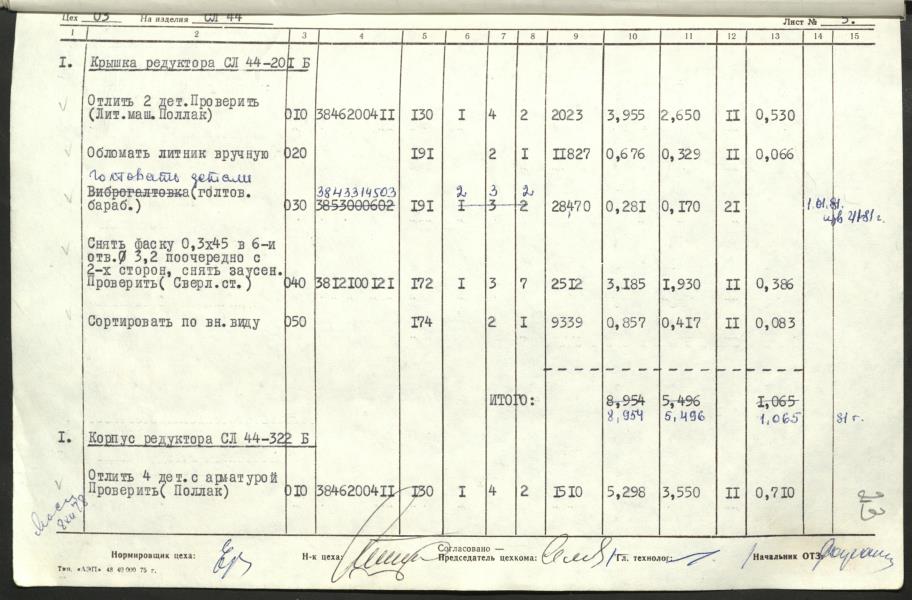 Цех 03 На изделия СЛ 44 Лист № 5.
1 2 3 4 5 6 7 8 9 10 11 12 13 14 15
I. Крышка редуктора СЛ 44-20I Б
Отлить 2 дет.Проверить
(Лит.маш.Поллак) 0I0 38462004II I30 I 4 2 2023 3,955 2,650 II 0,530
Обломать литник вручную 020 I9I 2 I II827 0,676 0,329 II 0,066
Голтовать детали
Виброгалтовка(голтов. 3843314503 2 3 2
бараб.) 030 3853000602 I9I I 3 2 28470 0,28I 0,I70 2I 1.01.81.
Снять фаску 0,3х45 в 6-и
отв.Ø 3,2 поочередно с
2-х сторон, снять заусен.
Проверить( Сверл.ст.) 040 38I2I00I2I I72 I 3 7 25I2 3,I85 I,930 II 0,386
Сортировать по вн.виду 050 I74 2 I 9339 0,857 0,4I7 II 0,083
ИТОГО: 8,954 5,496 I,065
8,954 5,496 1,065 81 г.
I. Корпус редуктора СЛ 44-322 Б
Отлить 4 дет.с арматурой
Проверить( Поллак) 0I0 38462004II I30 I 4 2 I5I0 5,298 3,550 II 0,7I0
Согласовано —
Нормировщик цеха: Н-к цеха: Председатель цехкома: Гл. технолог: Начальник ОТЗ:
Тип. «АЭП» 48 49 000 75 г.